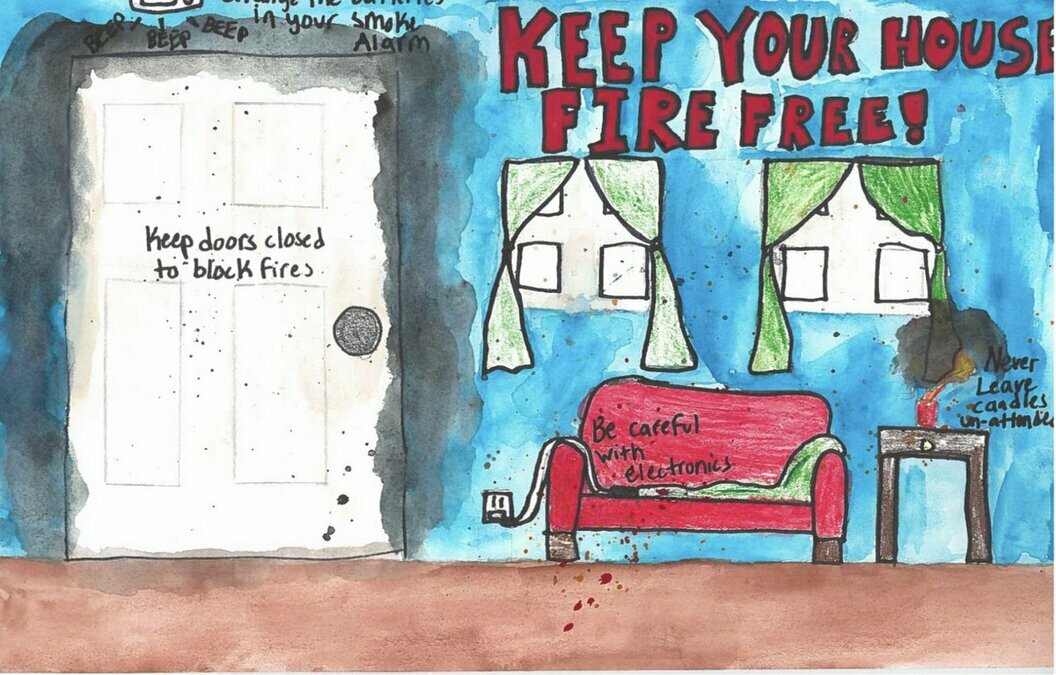 in your smoke
Alarm
BEEP! BEEP BEEP
KEEP YOUR HOUSE
FIRE FREE!
Keep doors closed
to block fires
Be careful
with
electronics
Never
Leave
candles